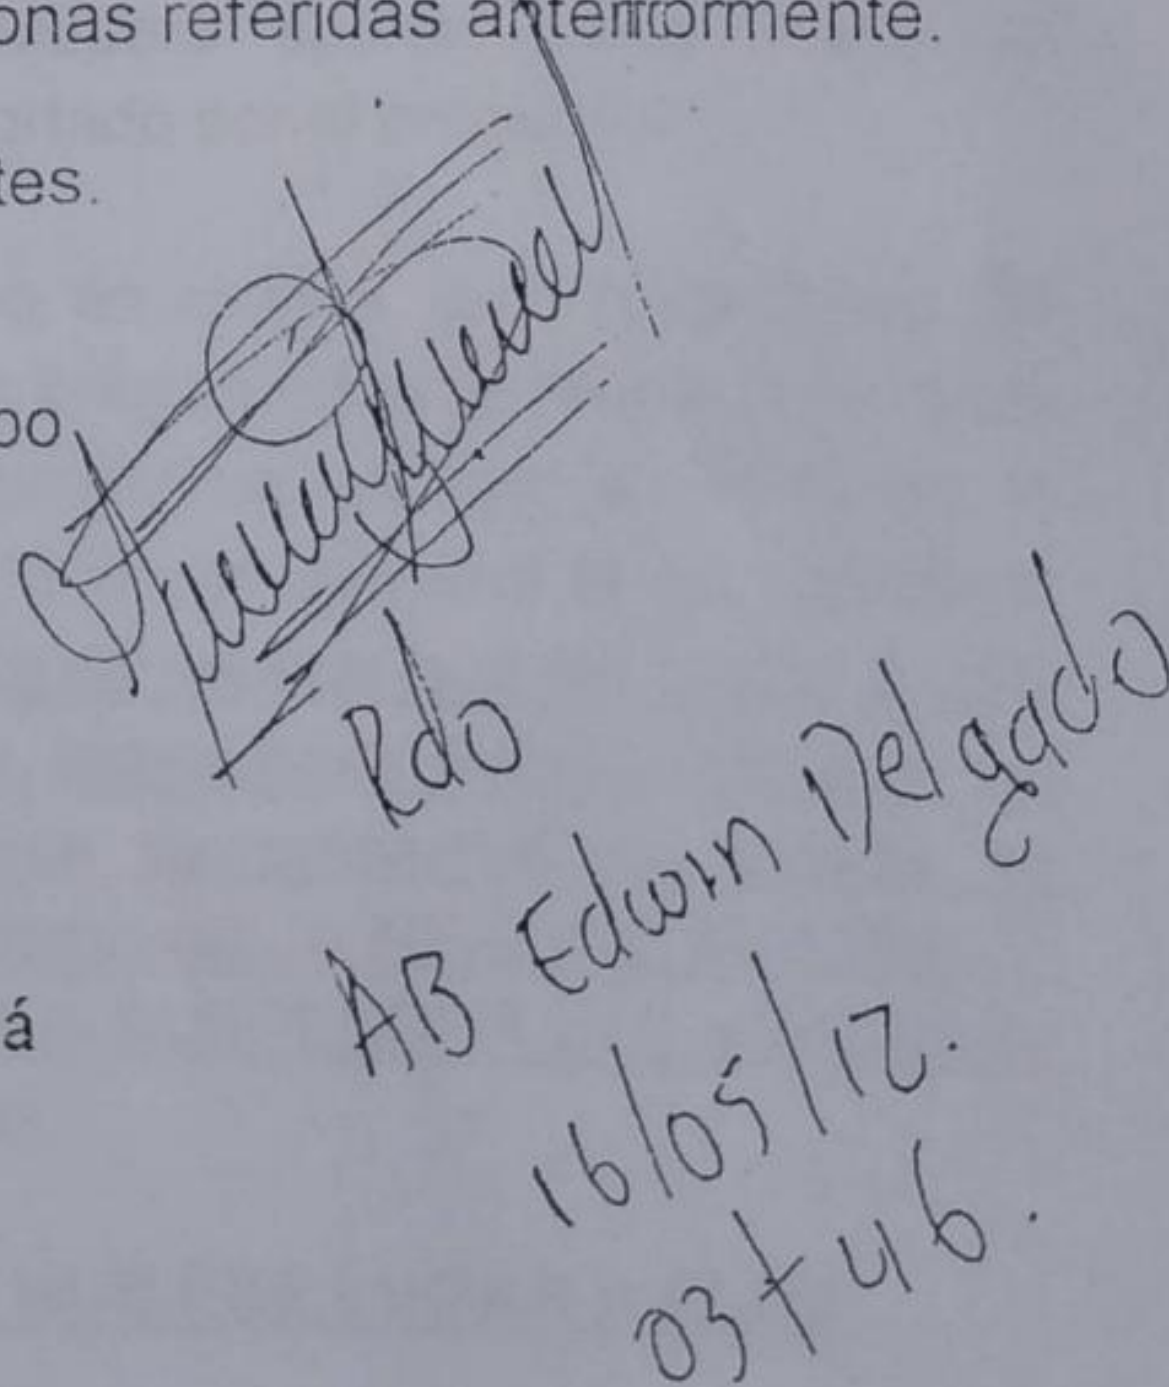 onas referidas anteriormente.
tes.
po
Rdo
AB Edwin Delgado
á
16/05/12.
03+46.